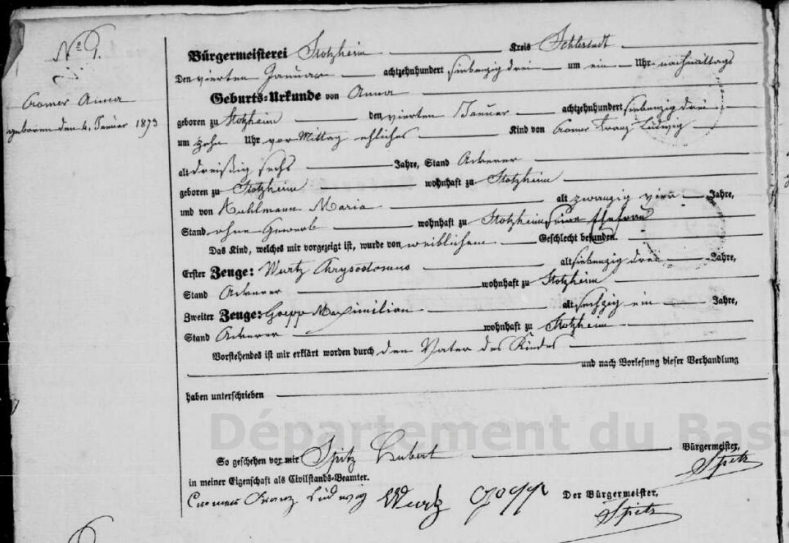 No. 9.
Cromer Anna
geboren den 4. Januar 1873
Bürgermeisterei Stotzheim Kreis Schlestadt
Den vierten Januar achtzehnhundert siebenzig drei um ein Uhr nachmittags
Geburts-Urkunde von Anna
geboren zu Stotzheim den vierten Januar achtzehnhundert siebenzig drei
um zehn Uhr vor Mittag ehliches Kind von Cromer Franz Ludwig
alt dreißig sechs Jahre, Stand Ackerer
geboren zu Stotzheim wohnhaft zu Stotzheim
und von Kuhlmann Maria alt zwanzig vier Jahre,
Stand ohne Gewerb wohnhaft zu Stotzheim seine Ehefrau
Das Kind, welches mir vorgezeigt ist, wurde von weiblichem Geschlecht befunden.
Erster Zeuge: Wurtz Chrysostomus alt siebenzig drei Jahre,
Stand Ackerer wohnhaft zu Stotzheim
Zweiter Zeuge: Goepp Maximilian alt sechzig ein Jahre,
Stand Ackerer wohnhaft zu Stotzheim
Vorstehendes ist mir erklärt worden durch den Vater des Kindes
und nach Vorlesung dieser Verhandlung
haben unterschrieben
Département du Bas-
So geschehen vor mir Spitz Hubert Bürgermeister,
in meiner Eigenschaft als Civilstands-Beamter. Spitz
Cromer Franz Ludwig Wurtz Goepp Der Bürgermeister,
Spitz